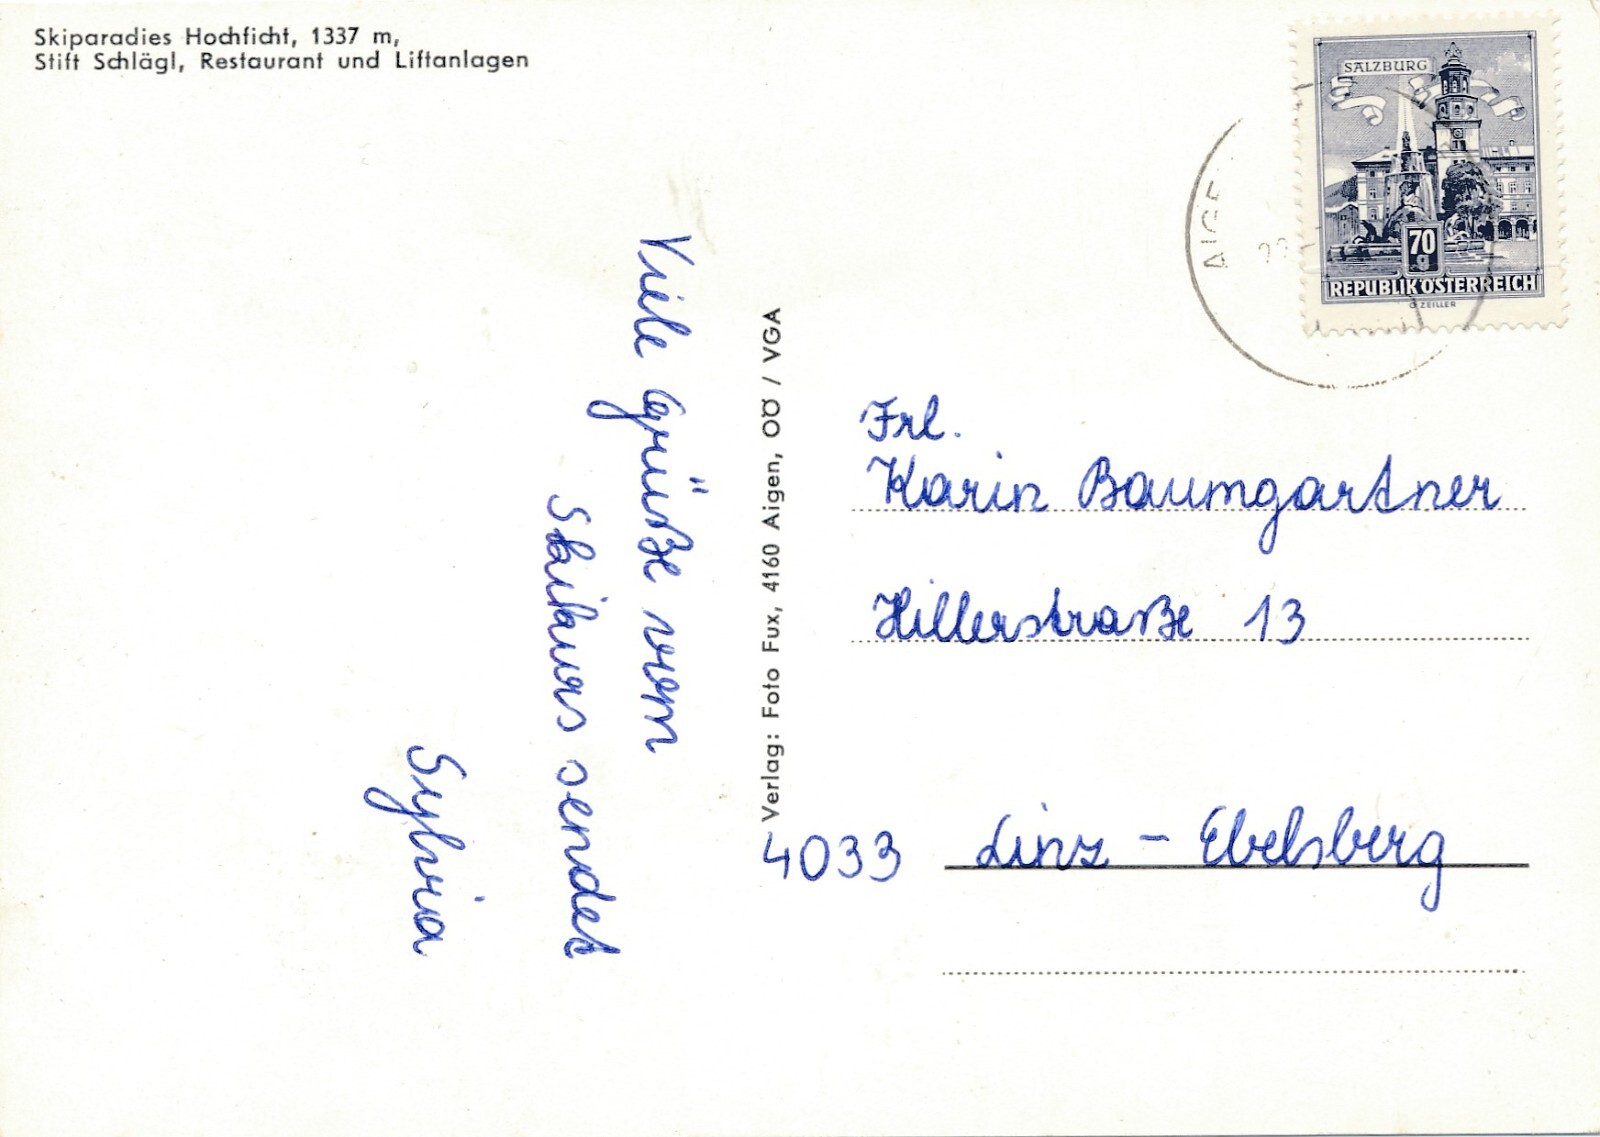 Skiparadies Hochficht, 1337 m,
Stift Schlägl, Restaurant und Liftanlagen
SALZBURG
70
g
REPUBLIK ÖSTERREICH
O. ZEILLER
AIGE
Viele Grüße vom
Skikurs sendet
Sylvia
Verlag: Foto Fux, 4160 Aigen, OÖ / VGA
Frl.
Karin Baumgartner
Hillerstraße 13
4033 Linz - Ebelsberg